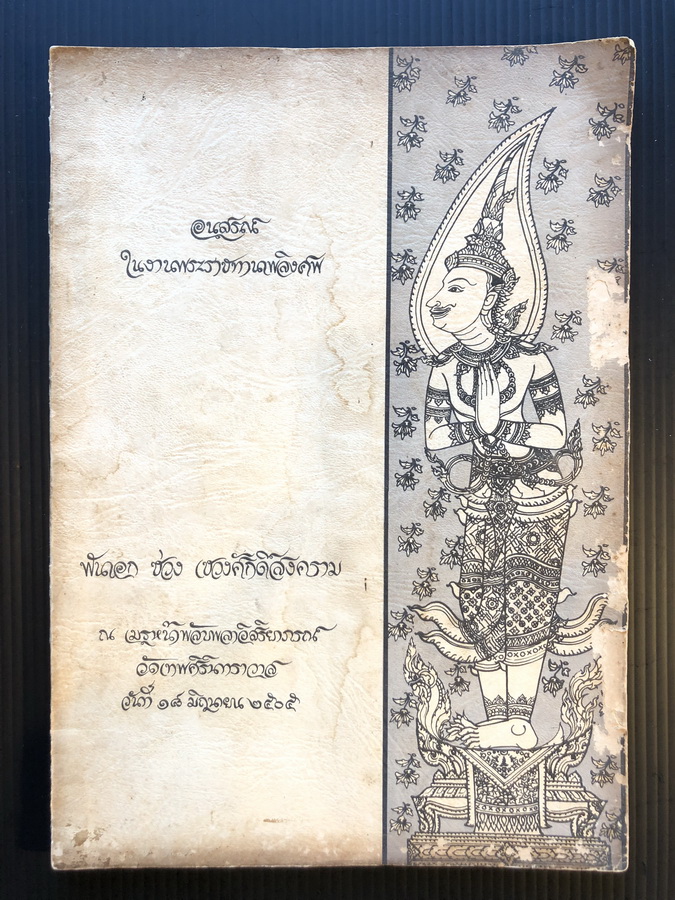 อนุสรณ์
ในงานพระราชทานเพลิงศพ
พันเอก ช่วง เชวงศักดิ์สงคราม
ณ เมรุหน้าพลับพลาอิสริยาภรณ์
วัดเทพศิรินทราวาส
วันที่ ๑๘ มิถุนายน ๒๕๐๕